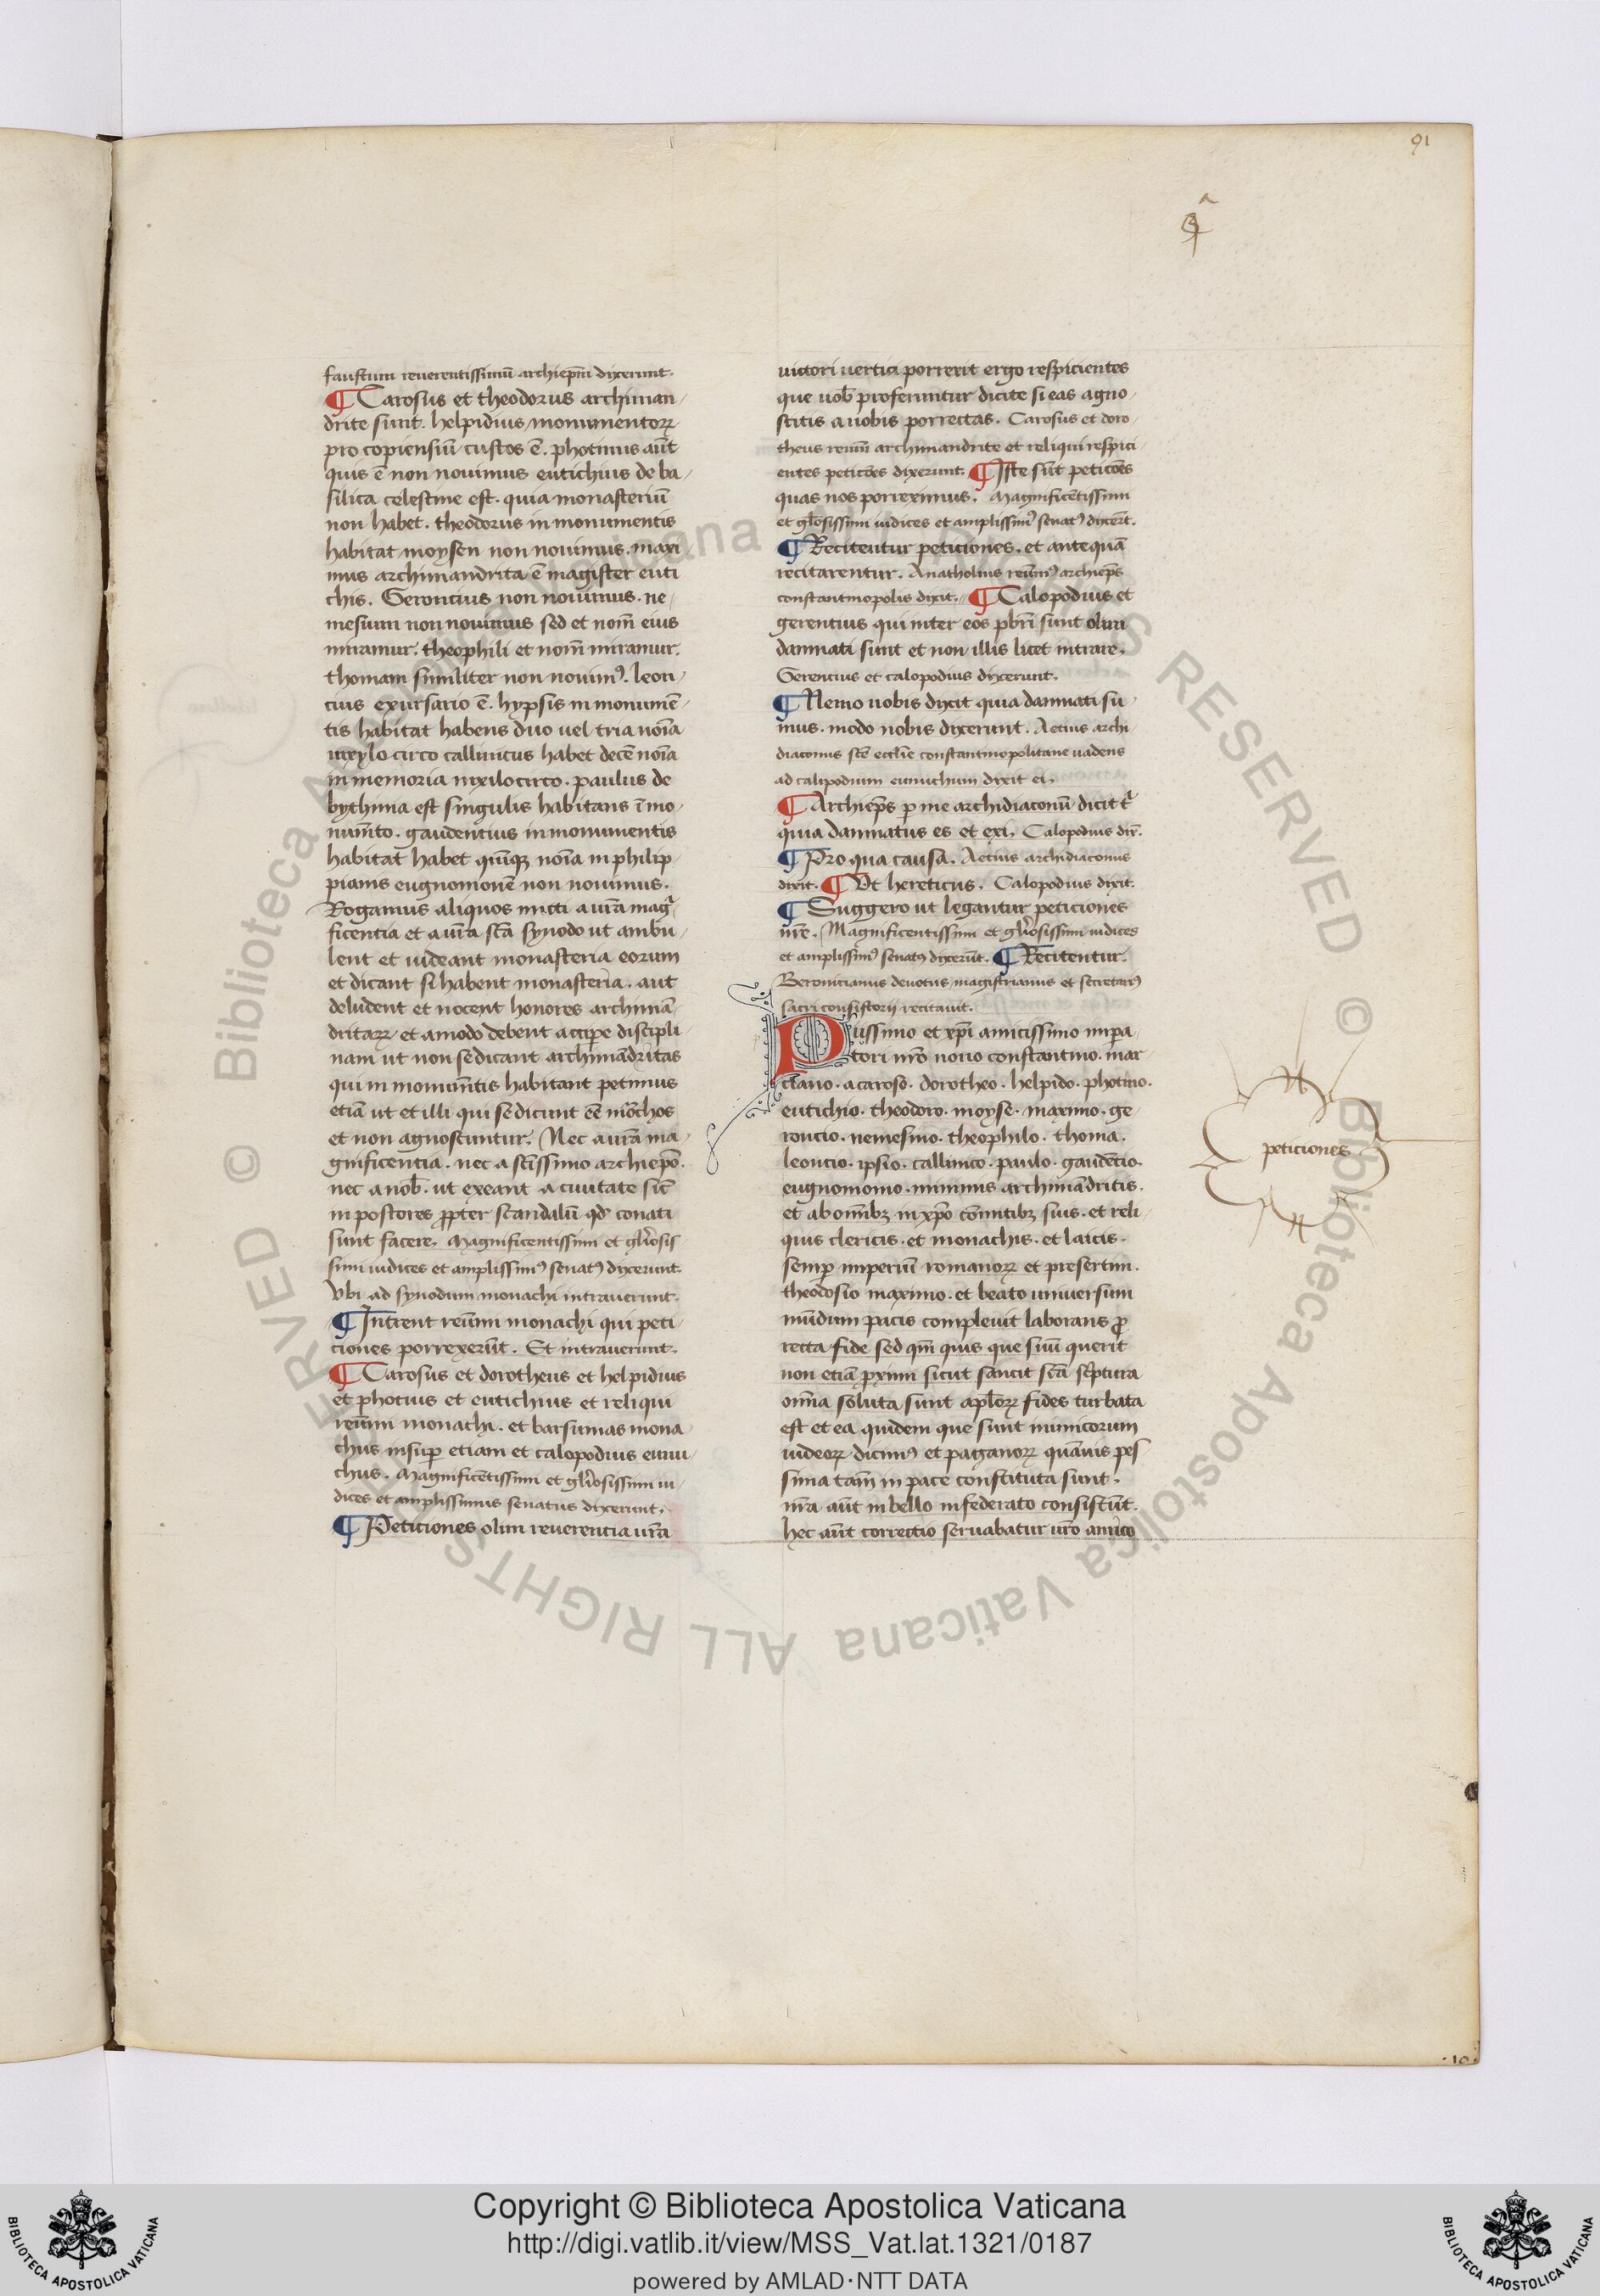 91
faustum reuerentissimũ archiepm̃ dixerunt.
¶ Carosus et theodorus archiman
drite sunt. helpidius monumentoꝝ
pro copiensiũ custos ẽ. photinus aũt
quis ẽ non nouimus eutichius de ba
silica celestine est. quia monasteriũ
non habet. theodorus in monumentis
habitat moysen non nouimus. maxi
mus archimandrita ẽ magister euti
chis. Gerontius non nouimus. ne
mesium non nouimus sed et nom̃ eius
miramur. theophili et nom̃ miramur.
thomam similiter non nouimꝰ. leon
cius exursario ẽ. hypsis in monumẽ
tis habitat habens duo uel tria noĩa
in xylo circo callinicus habet decẽ noĩa
in memoria in xilo circo. paulus de
bythinia est singulis habitans ĩ mo
num̃to. gaudentius in monumentis
habitat habet quĩqꝫ noĩa in philip
pianis eugnomonẽ non nouimus.
Rogamus aliquos mitti a ur̃a magͥ
ficentia et a ur̃a sc̃a synodo ut ambu
lent et uideant monasteria eorum
et dicant si habent monasteria. aut
deludent et nocent honores archimã
dritaꝝ et amodo debent accipe discipli
nam ut non se dicant archimãdritas
qui in monum̃tis habitant petimus
etiã ut et illi qui se dicunt cẽ mõchos
et non agnoscuntur. Nec a ur̃a ma
gnificentia. nec a sc̃issimo archiepõ.
nec a nob̃. ut exeant a ciuitate sic̃
in postores ꝓpter scandalũ qd̃ conati
sunt facere. Magnificentissimi et glr̃iosis
simi iudices et amplissimꝰ senatꝰ dixerunt.
Vbi ad synodum monachi intrauerunt.
¶ Intrent reũmi monachi qui peti
ciones porrexerũt. Et intrauerunt.
¶ Carosus et dorotheus et helpidius
et photius et eutichius et reliqui
reũmi monachi. et barsumas mona
chus insup etiam et calopodius eunu
chus. Magnificẽtissimi et glr̃iosissimi iu
dices et amplissimus senatus dixerunt.
¶ Peticiones olim reuerentia ur̃a
uictori uertici porrexit ergo respicientes
que uob̃ proferuntur dicite si eas agno
scitis a uobis porrectas. Carosus et doro
theus reũmi archimandrite et reliqui respici
entes peticões dixerunt. ¶ Iste sũt peticões
quas nos porreximus. Magnificẽtissimi
et glõsissimi iudices et amplissimꝰ senatꝰ dixerũt.
¶ Recitentur peticiones. et antequã
recitarentur. Anatholius reũmꝰ archiep̃s
constantinopolis dixit. ¶ Calopodius et
gerentius qui inter eos pbr̃i sunt olim
damnati sunt et non illis licet intrare.
Gerentius et calopodius dixerunt.
¶ Nemo uobis dixit quia damnati su
mus. modo nobis dixerunt. Aetius archi
diaconus sc̃e eccl̃ie constantinopolitane uadens
ad calipodium eunuchum dixit ei.
¶ Archiep̃s p me archidiaconũ dicit tͥ
quia damnatus es et exi. Calopodius dix̃.
¶ Pro qua causa. Aetius archidiaconus
dixit. ¶ Vt hereticus. Calopodius dixit.
¶ Suggero ut legantur peticiones
nr̃e. Magnificentissimi et glr̃iosissimi iudices
et amplissimꝰ senatꝰ dixerũt. ¶ Recitentur.
Beronicianus deuotus magistrianus et secretariꝰ
sacri consistorii recitauit.
Piissimo et xp̃i amicissimo impa
tori nr̃o nouo constantino. mar
ciano. a caroso. dorotheo. helpido. photino.
eutichio. theodoro. moyse. maximo. ge
roncio. nemesino. theophilo. thoma.
leoncio. ipsio. callinico. paulo. gaudẽcio.
eugnomonio. minimis archimãdritis.
et ab oĩnibꝫ in xp̃o cõmitibꝫ suis. et reli
quis clericis. et monachis. et laicis.
semp imperiũ romanoꝝ et presertim.
theodosio maximo. et beato uniuersum
mũdum pacis compleuit laborans ꝓ
recta fide sed qm̃ quis que suũ querit
non etiã pximi sicut sancit sc̃a scͥptura
om̃ia soluta sunt apl̃oꝝ fides turbata
est et ea quidem que sunt inimicorum
iudeoꝝ dicimꝰ et paganoꝝ quãuis pes
sima tam̃ in pace constituta sunt.
nr̃a aũt in bello infederato consistũt.
hec aũt correctio seruabatur ur̃o amico
peticiones
.10.
© Biblioteca Apostolica Vaticana ALL RIGHTS RESERVED
© Biblioteca Apostolica Vaticana ALL RIGHTS RESERVED
Copyright © Biblioteca Apostolica Vaticana
http://digi.vatlib.it/view/MSS_Vat.lat.1321/0187
powered by AMLAD·NTT DATA
BIBLIOTECA APOSTOLICA VATICANA
BIBLIOTECA APOSTOLICA VATICANA